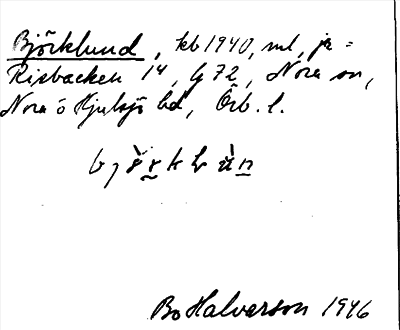 Björklund, kb 1940, ml, ja =
Risbacken 14, G 72, Nora sn,
Nora o Hjulsjö bd, Örb. l.
Bo Halvarson 1946